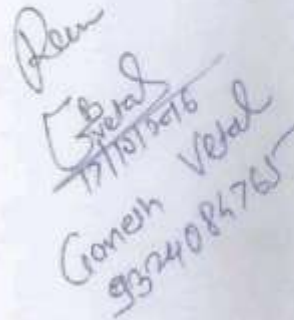 Rew
Gvetal
17/10/2016
Ganesh Vetal
9324084765